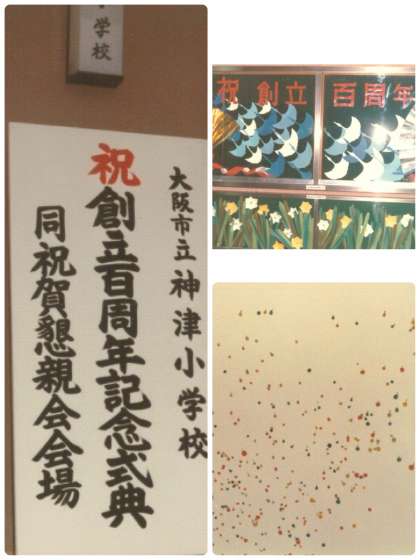 小学校
大阪市立 神津小学校
祝 創立百周年記念式典
同祝賀懇親会会場
祝 創立 百周年